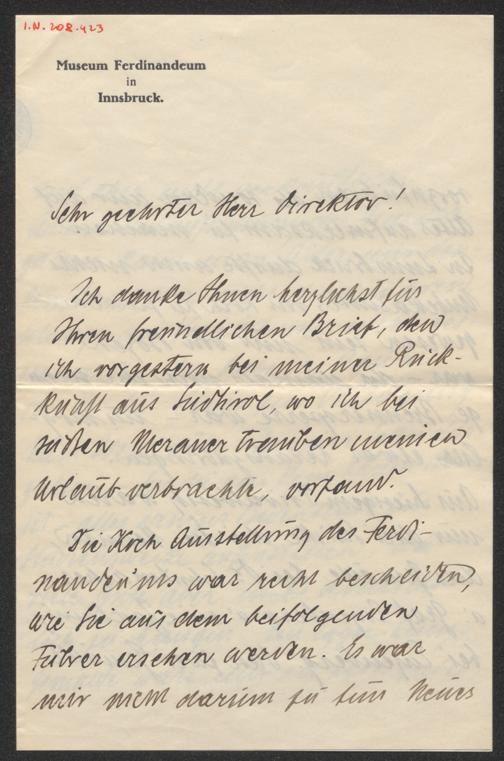 I.N. 208.423
Museum Ferdinandeum
in
Innsbruck.
Sehr geehrter Herr Direktor!
Ich danke Ihnen herzlichst für
Ihren freundlichen Brief, den
ich vorgestern bei meiner Rück-
kunft aus Südtirol, wo ich bei
süßen Meraner Trauben meinen
Urlaub verbrachte, vorfand.
Die Koch Ausstellung des Ferdi-
nandeums war recht bescheiden,
wie Sie aus dem beifolgenden
Führer ersehen werden. Es war
mir nicht darum zu tun Neues